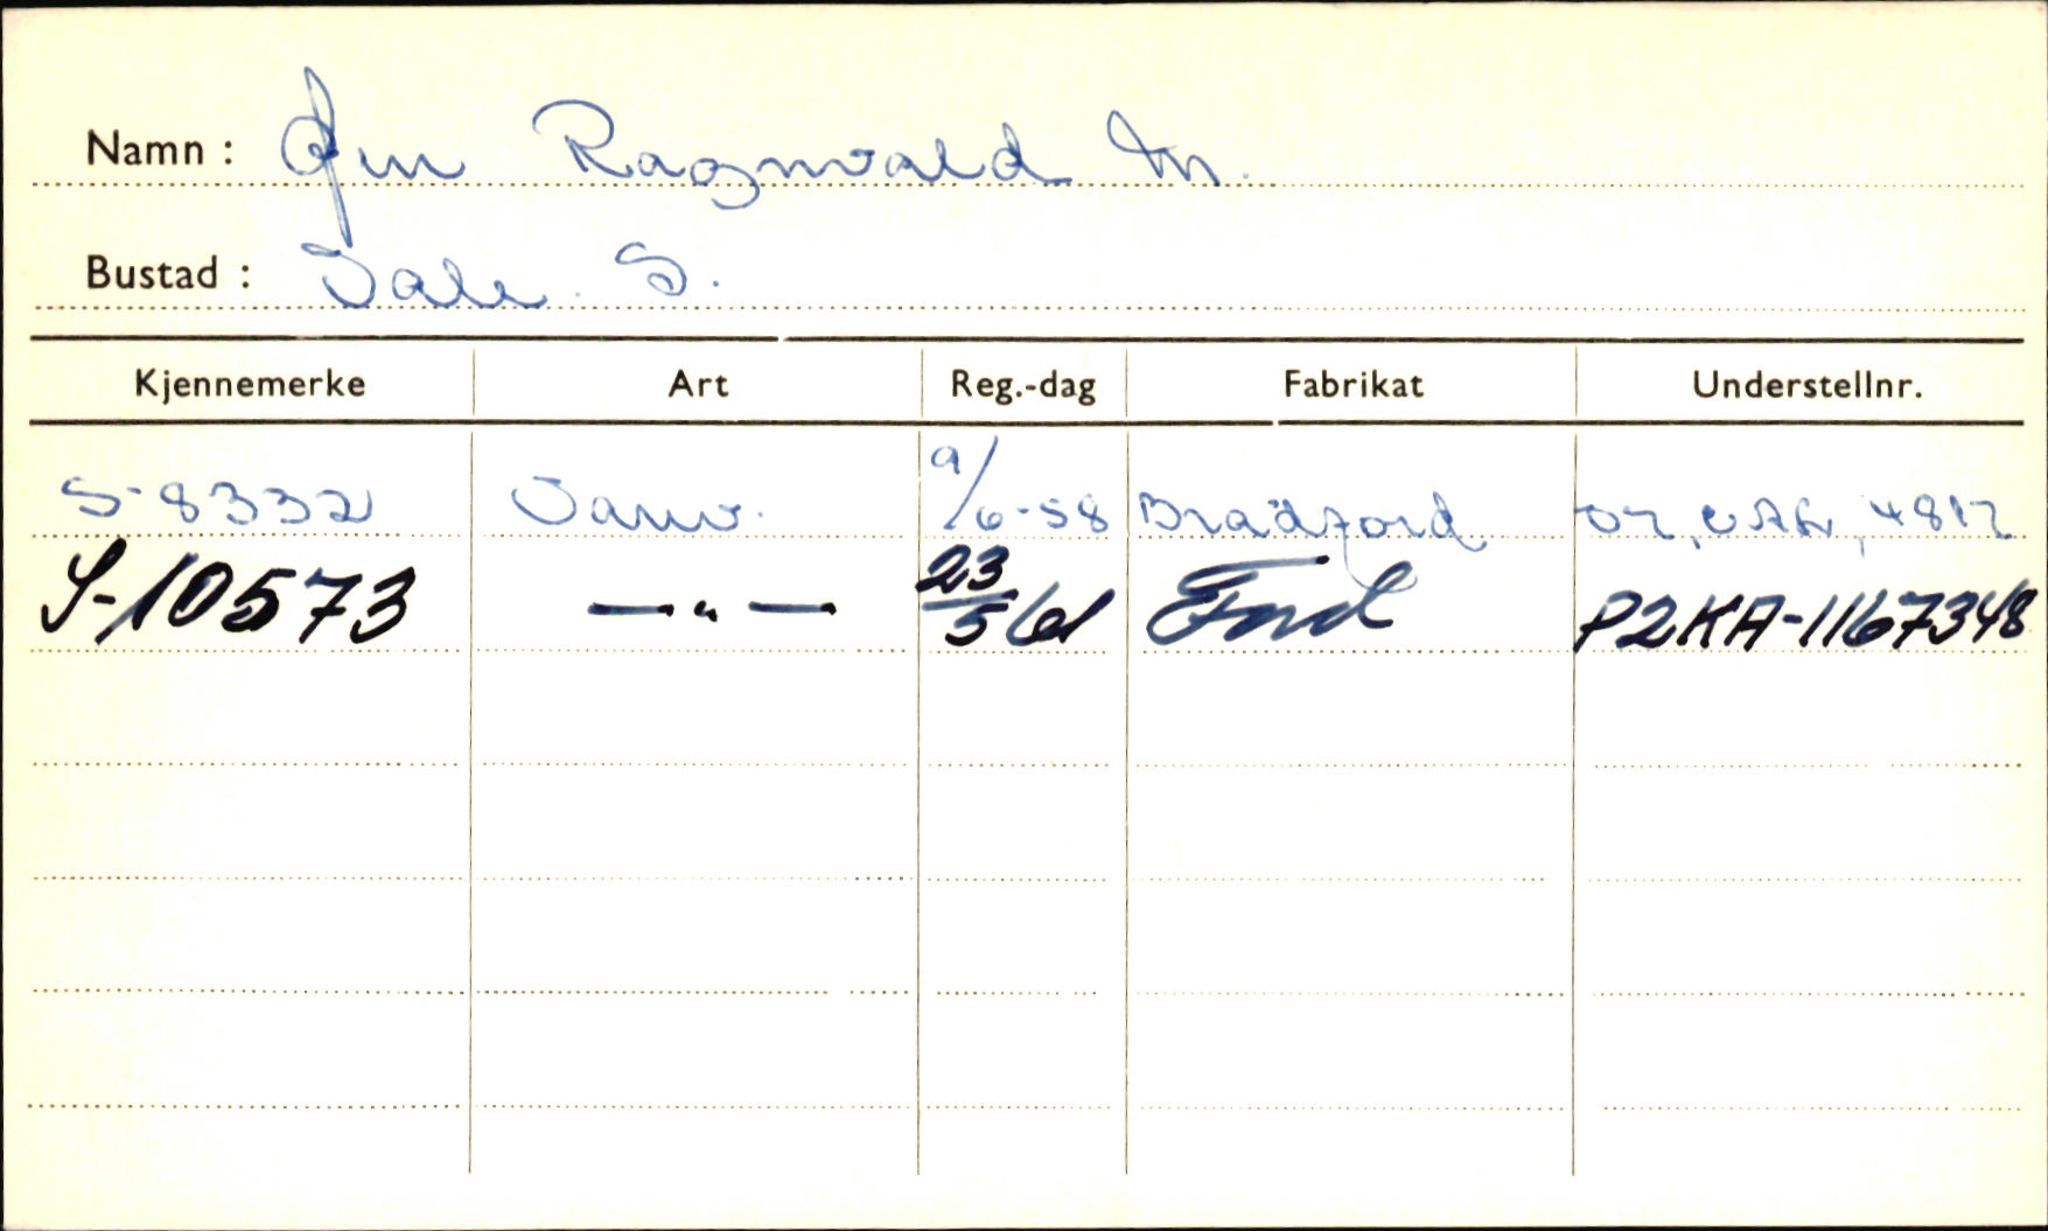 Namn : Øen Ragnvald M.
Bustad : Dale S.
Kjennemerke Art Reg.-dag Fabrikat Understellnr.
S-8332 Varev. 9/6-58 Bradford
S-10573 — " — 23/5 61 Ford P2KA-1167348